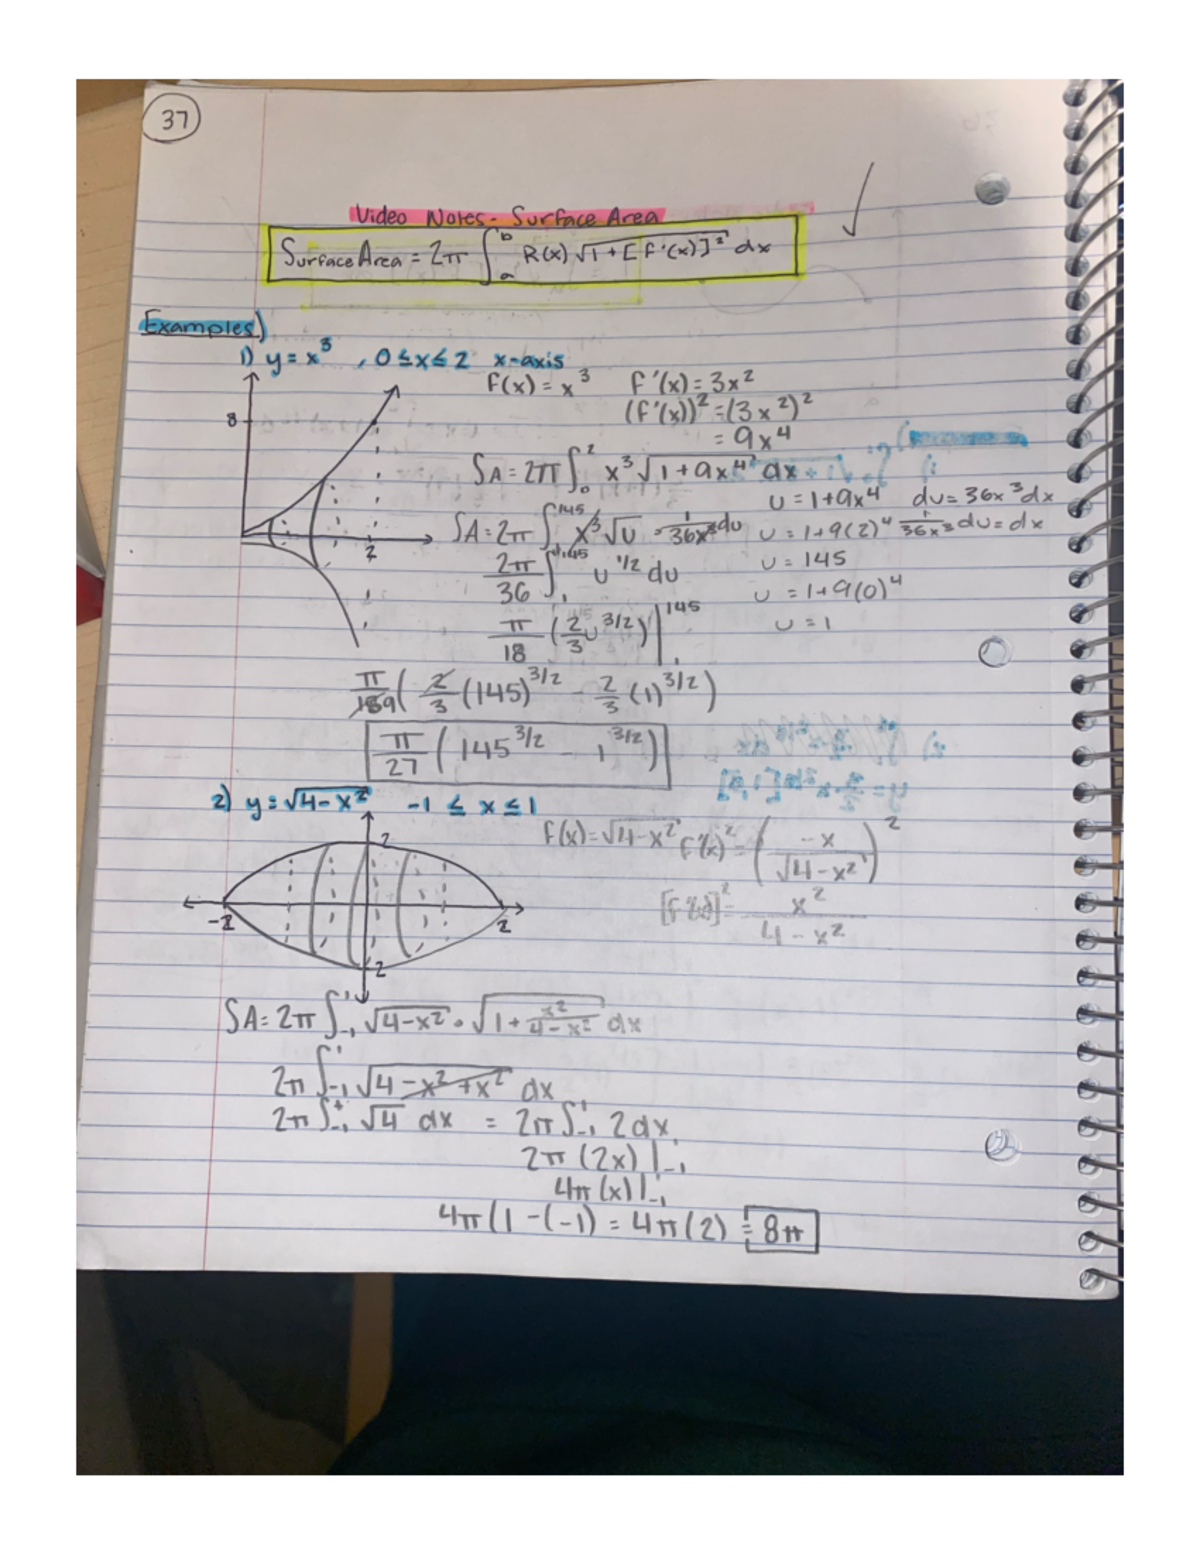 37
Video Notes - Surface Area
Surface Area = 2π ∫_a^b R(x) √(1 + [f'(x)]²) dx
Examples)
1) y = x³ , 0 ≤ x ≤ 2 x-axis
f(x) = x³ f'(x) = 3x²
(f'(x))² = (3x²)²
= 9x⁴
8
2
SA = 2π ∫_0^2 x³ √(1 + 9x⁴) dx
u = 1 + 9x⁴ du = 36x³ dx
SA = 2π ∫_1^145 x³ √u · 1/(36x³) du
u = 1 + 9(2)⁴ 1/(36x³) du = dx
2π/36 ∫_1^145 u^(1/2) du
u = 145
u = 1 + 9(0)⁴
π/18 (2/3 u^(3/2)) |_1^145
u = 1
π/18 9 (2/3 (145)^(3/2) - 2/3 (1)^(3/2))
π/27 (145^(3/2) - 1^(3/2))
2) y = √(4-x²) -1 ≤ x ≤ 1
f(x) = √(4-x²) f'(x)² = (-x/√(4-x²))²
[f'(x)]² = x²/(4-x²)
2
-2
2
2
SA = 2π ∫_-1^1 √(4-x²) · √(1 + x²/(4-x²)) dx
2π ∫_-1^1 √(4 - x² + x²) dx
2π ∫_-1^1 √4 dx = 2π ∫_-1^1 2dx
2π (2x) |_-1^1
4π (x) |_-1^1
4π (1 - (-1) = 4π (2) = 8π